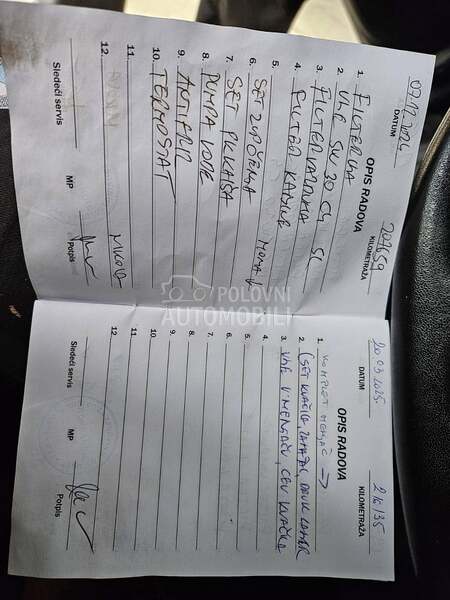 09.12.2024 207659
DATUM KILOMETRAŽA
OPIS RADOVA
1. FILTER ULJA
2. ULJE 5W 30 C4 5L
3. FILTER VAZDUHA
4. FILTER KABINE
5.
6. SET ZUPČENJA
7. SET PK KAIŠA
8. PUMPA VODE
9. ANTIFRIZ
10. TERMOSTAT
11.
12.
Sledeći servis MP Potpis
POLOVNI
AUTOMOBILI
20.03.2025 216135
DATUM KILOMETRAŽA
OPIS RADOVA
1. KOMPLET MENJAČ →
2. (SET KVAČILA, ZAMAJAC, DRUK LAGER
3. ULJE U MENJAČU, CEV KVAČILA
4.
5.
6.
7.
8.
9.
10.
11.
12.
Sledeći servis MP Potpis